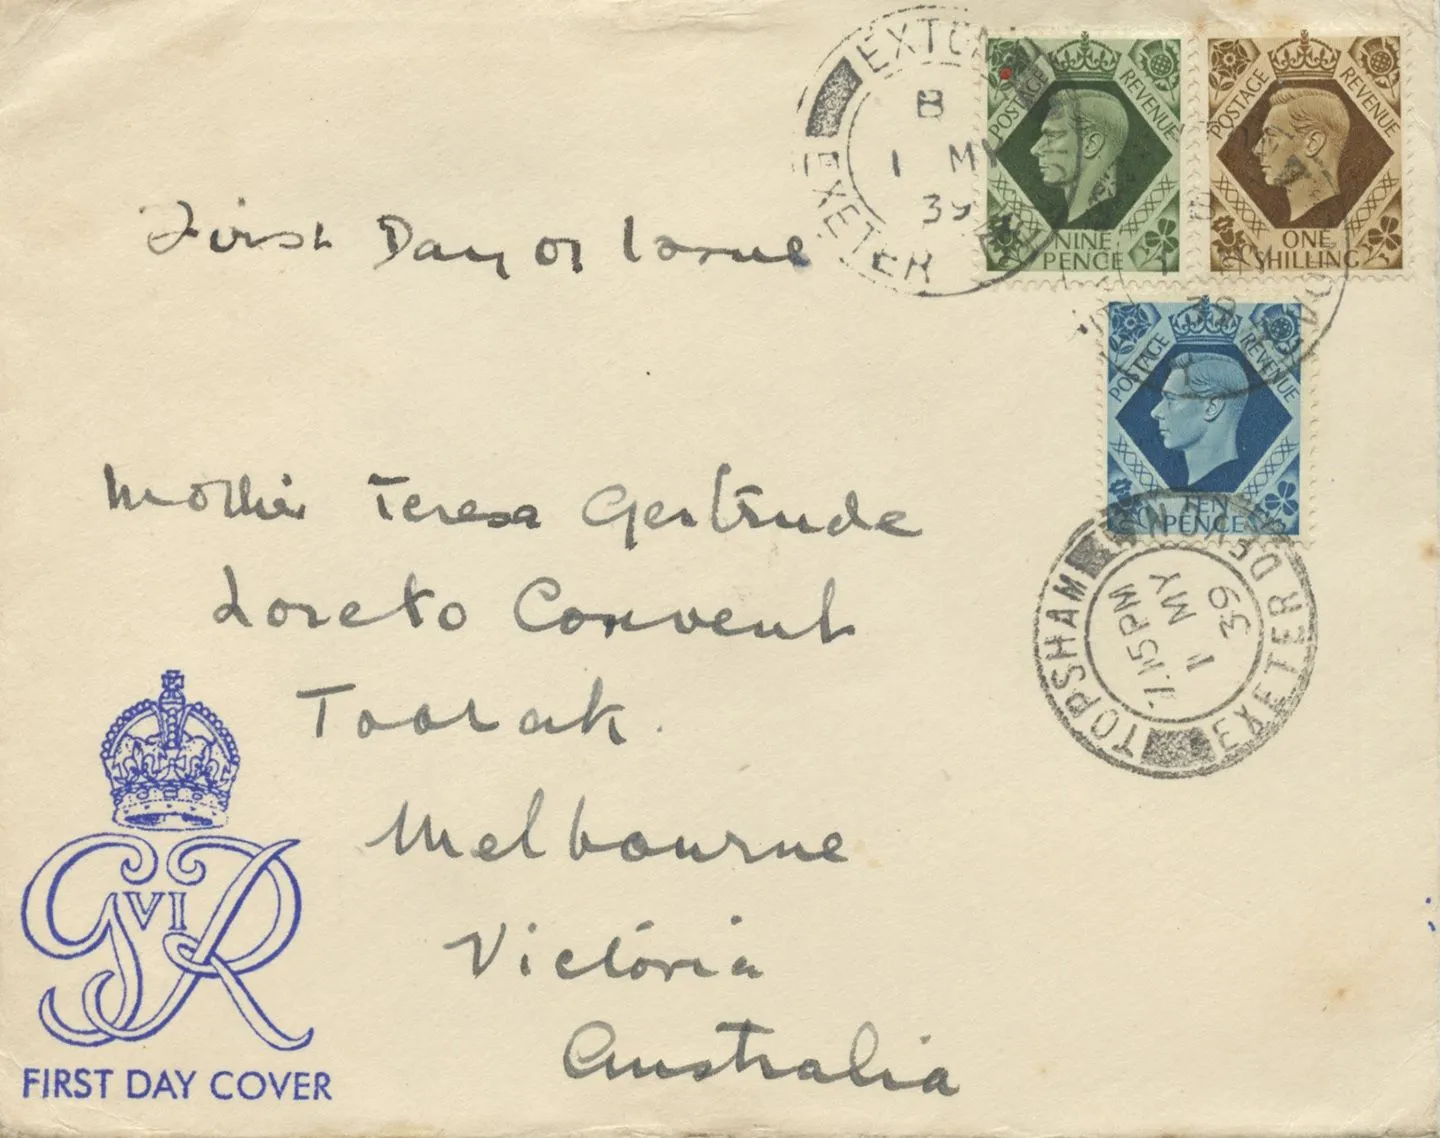 EXTON
EXETER
B
1 MY
39
POSTAGE REVENUE
NINE
PENCE
POSTAGE REVENUE
ONE
SHILLING
First Day of Issue
POSTAGE REVENUE
TEN
PENCE
Mother Teresa Gertrude
Loreto Convent
Toorak.
Melbourne
Victoria
Australia
TOPSHAM
EXETER DEVON
7.15PM
1 MY
39
G VI R
FIRST DAY COVER